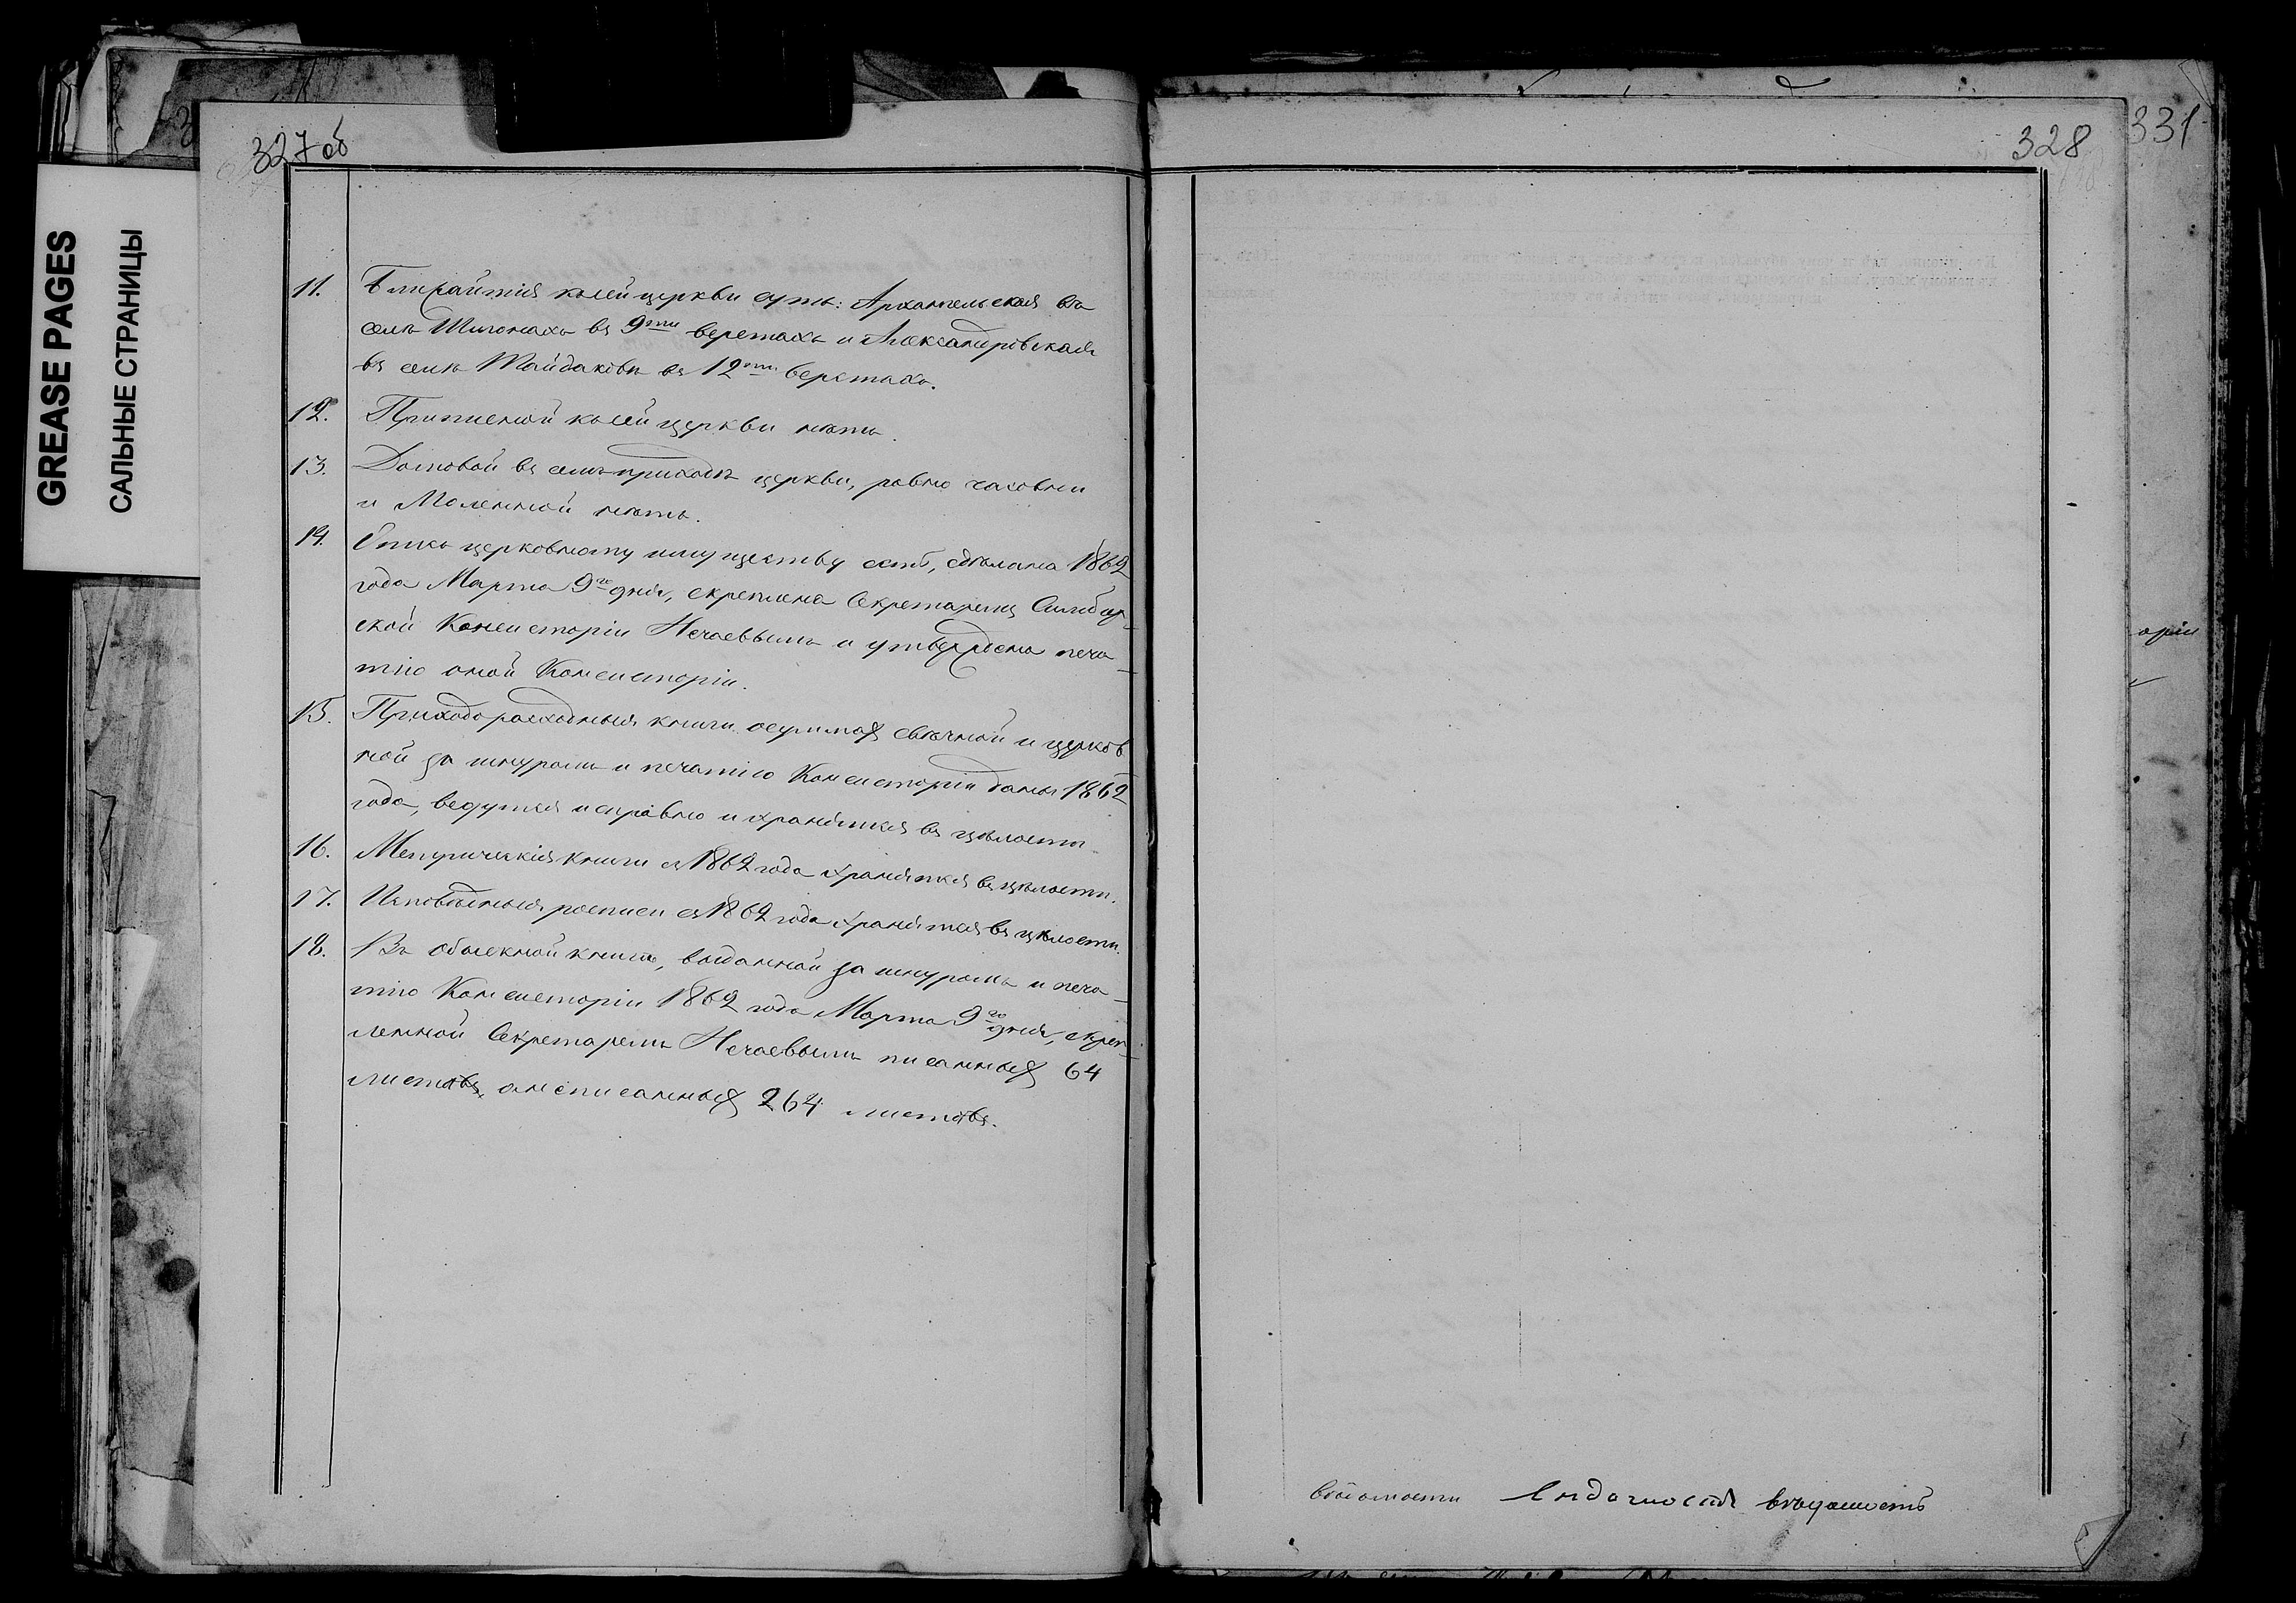 GREASE PAGES
САЛЬНЫЕ СТРАНИЦЫ
327об
11. Ближайшія къ сей церкви суть: Архангельская въ
селѣ Шигонахъ въ 9ти верстахъ и Александровская
въ селѣ Тайдаковѣ въ 12ти верстахъ.
12. Приписной къ сей церкви нѣтъ.
13. Домовой въ семъ приходѣ церкви, равно часовни
и Моленной нѣтъ.
14. Опись церковному имуществу есть, сдѣлана 1862
года Марта 9го дня, скреплена Секретаремъ Симбир-
ской Консисторіи Нечаевымъ и утверждена печа-
тію оной Консисторіи.
15. Приходорасходныя книги о суммахъ свѣчной и церков
ной за шнуромъ и печатію Консисторіи даны 1862
года, ведутся исправно и хранятся въ цѣлости.
16. Метрическія книги съ 1862 года хранятся въ цѣлости.
17. Исповѣдныя росписи съ 1862 года хранятся въ цѣлости.
18. Въ обыскной книгѣ, выданной за шнуромъ и печа-
тію Консисторіи 1862 года Марта 9го дня, скреп-
ленной Секретаремъ Нечаевымъ писанныхъ 64
листовъ, а неписанныхъ 264 листовъ.
328
331
оріи